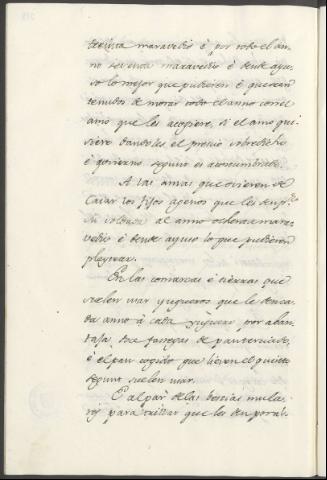 treinta maravedis é por todo el an-
no sesenta maravedis é dende ayu-
so lo mejor que pudieren é que sean
tenudos de morar todo el anno con el
amo que los acogiere, si el amo qui-
siere dandoles el precio sobredicho
é govierno segund es acostumbrado.
A las amas que ovieren de
criar los fijos agenos que les den p.r
su soldada al anno ochenta mara-
vedis é dende ayuso lo que pudieren
pleytear.
En las comarcas é tierras que
suelen usar yugueros que le den ca-
da anno á cada yuguero por aban-
taja doce fanegas de pan terciado,
é el pan cogido que lieven el quinto
segunt suelen usar.
E al par de las bestias mula-
res para trillar que les den por al-